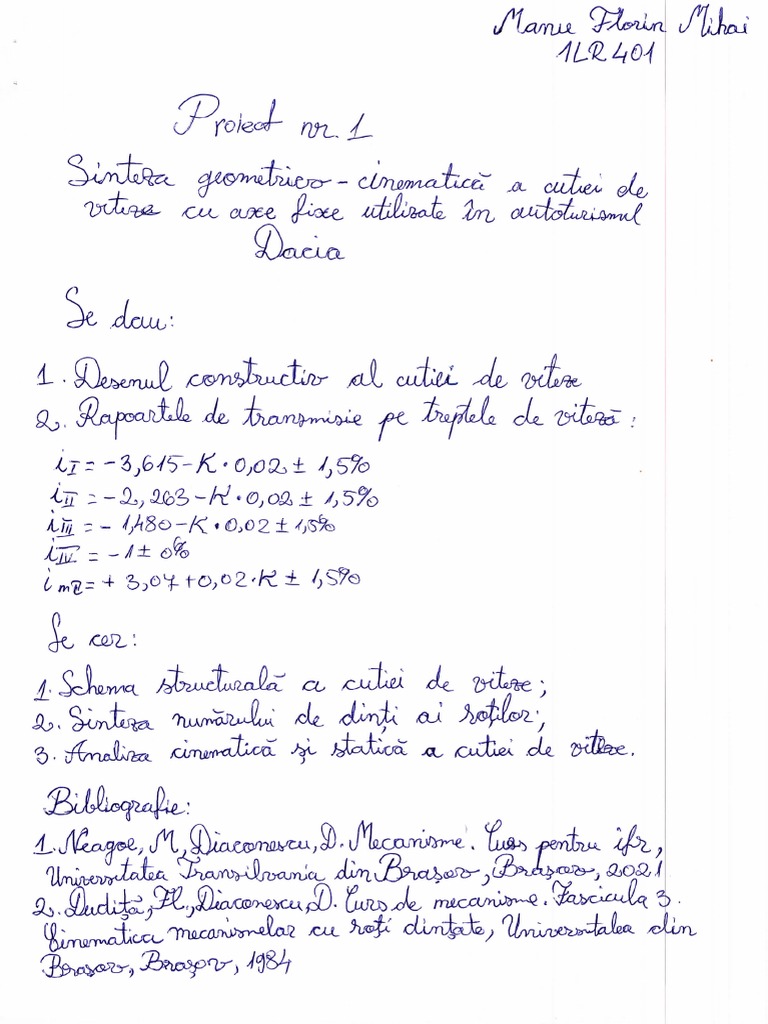 Manu Florin Mihai
1LR401
Proiect nr. 1
Sinteza geometrico-cinematică a cutiei de
viteze cu axe fixe utilizate în autoturismul
Dacia
Se dau:
1. Desenul constructiv al cutiei de viteze
2. Rapoartele de transmisie pe treptele de viteză:
i_I = -3,615-K·0,02 ± 1,5%
i_II = -2,263-K·0,02 ± 1,5%
i_III = -1,480-K·0,02 ± 1,5%
i_IV = -1 ± 0%
i_mR = + 3,07+0,02·K ± 1,5%
Se cer:
1. Schema structurală a cutiei de viteze;
2. Sinteza numărului de dinți ai roților;
3. Analiza cinematică și statică a cutiei de viteze.
Bibliografie:
1. Neagoe, M, Diaconescu, D. Mecanisme. Curs pentru ifr,
Universitatea Transilvania din Brașov, Brașov, 2021
2. Dudiță, Fl., Diaconescu, D. Curs de mecanisme. Fascicula 3.
Cinematica mecanismelor cu roți dințate, Universitatea din
Brașov, Brașov, 1984